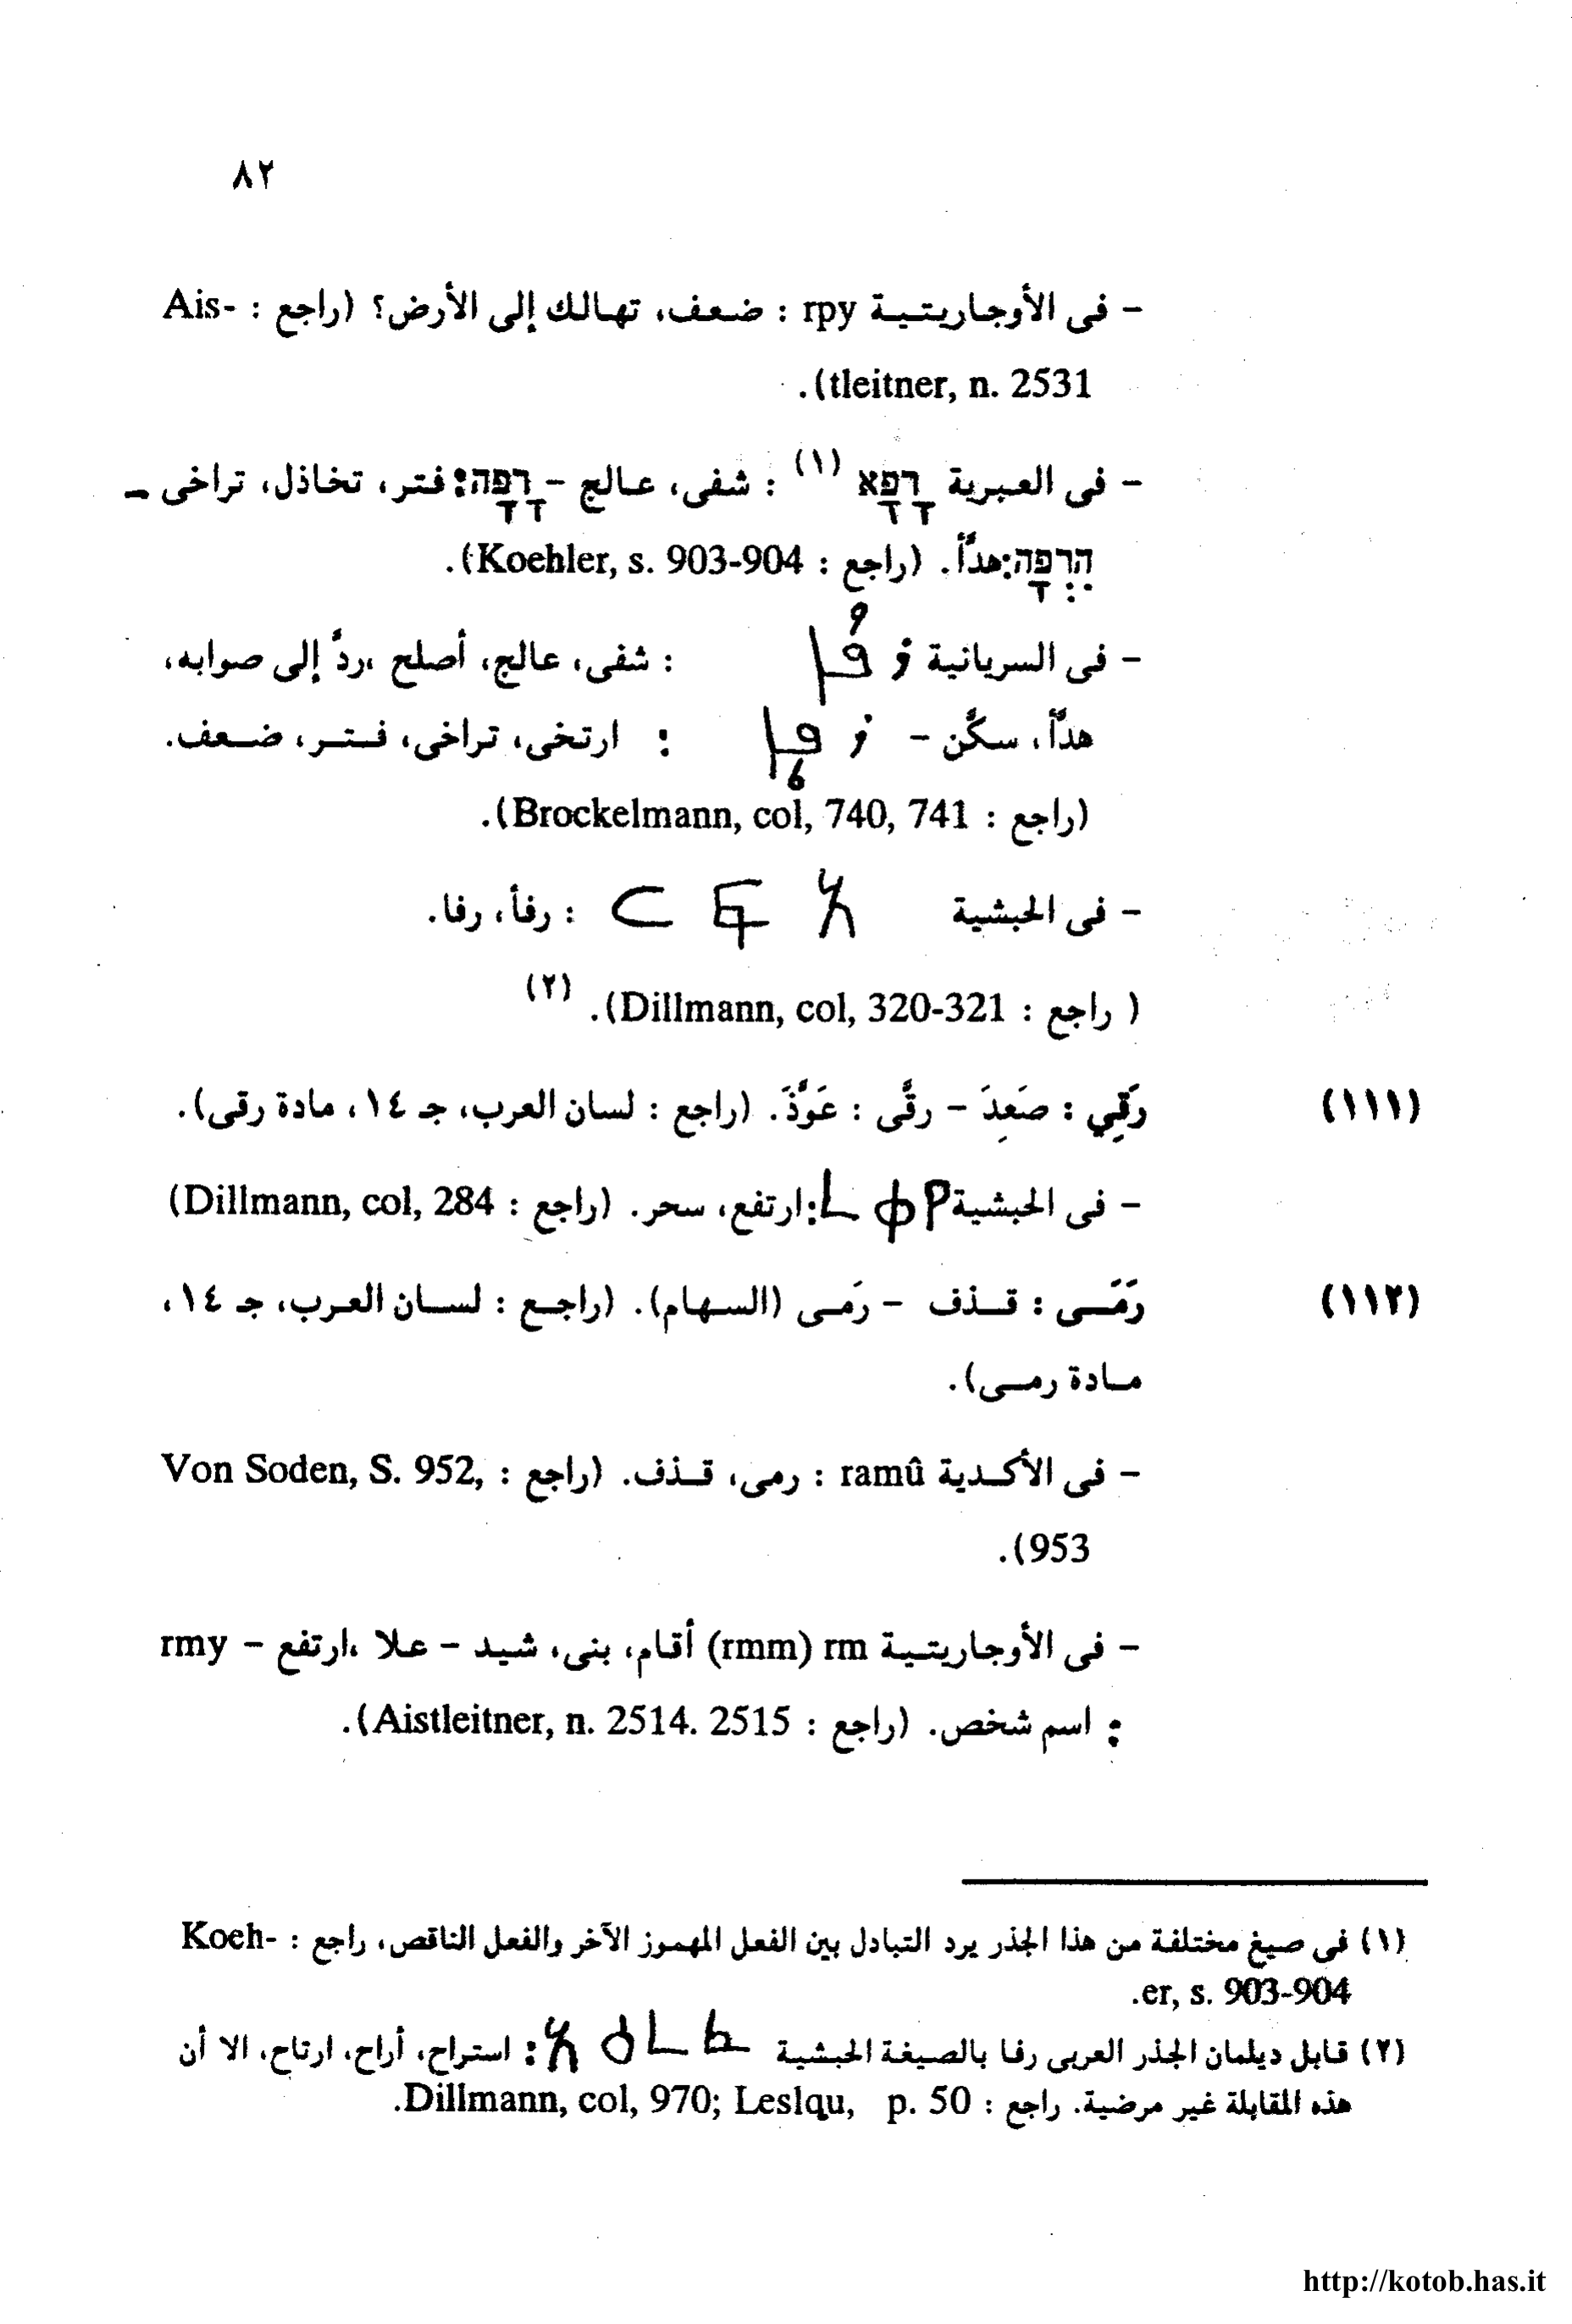 ٨٢
- فى الأوجاريتية rpy : ضعف، تهالك إلى الأرض؟ (راجع : Ais-
tleitner, n. 2531).
- فى العبرية רָפָא (١) : شفى، عالج - רָפָה: فتر، تخاذل، تراخى -
הִרְפָּה: هدّأ. (راجع : Koehler, s. 903-904).
- فى السريانية : شفى، عالج، أصلح ،ردّ إلى صوابه،
هدّأ، سكّن - : ارتخى، تراخى، فتر، ضعف.
(راجع : Brockelmann, col, 740, 741).
- فى الحبشية : رفأ، رفا.
( راجع : Dillmann, col, 320-321). (٢)
(١١١) رَقِي : صَعِدَ - رقَّى : عَوَّذَ. (راجع : لسان العرب، جـ ١٤، مادة رقى).
- فى الحبشية ረቀየ: ارتفع، سحر. (راجع : Dillmann, col, 284)
(١١٢) رَمَى : قذف - رَمى (السهام). (راجع : لسان العرب، جـ ١٤،
مادة رمى).
- فى الأكدية ramû : رمى، قذف. (راجع : Von Soden, S. 952,
953).
- فى الأوجاريتية rm (rmm) أقام، بنى، شيد - علا ،ارتفع - rmy
: اسم شخص. (راجع : Aistleitner, n. 2514. 2515).
(١) فى صيغ مختلفة من هذا الجذر يرد التبادل بين الفعل المهموز الآخر والفعل الناقص، راجع : Koeh-
er, s. 903-904.
(٢) قابل ديلمان الجذر العربى رفا بالصيغة الحبشية : استراح، أراح، ارتاح، الا أن
هذه المقابلة غير مرضية. راجع : Dillmann, col, 970; Leslqu, p. 50.
http://kotob.has.it